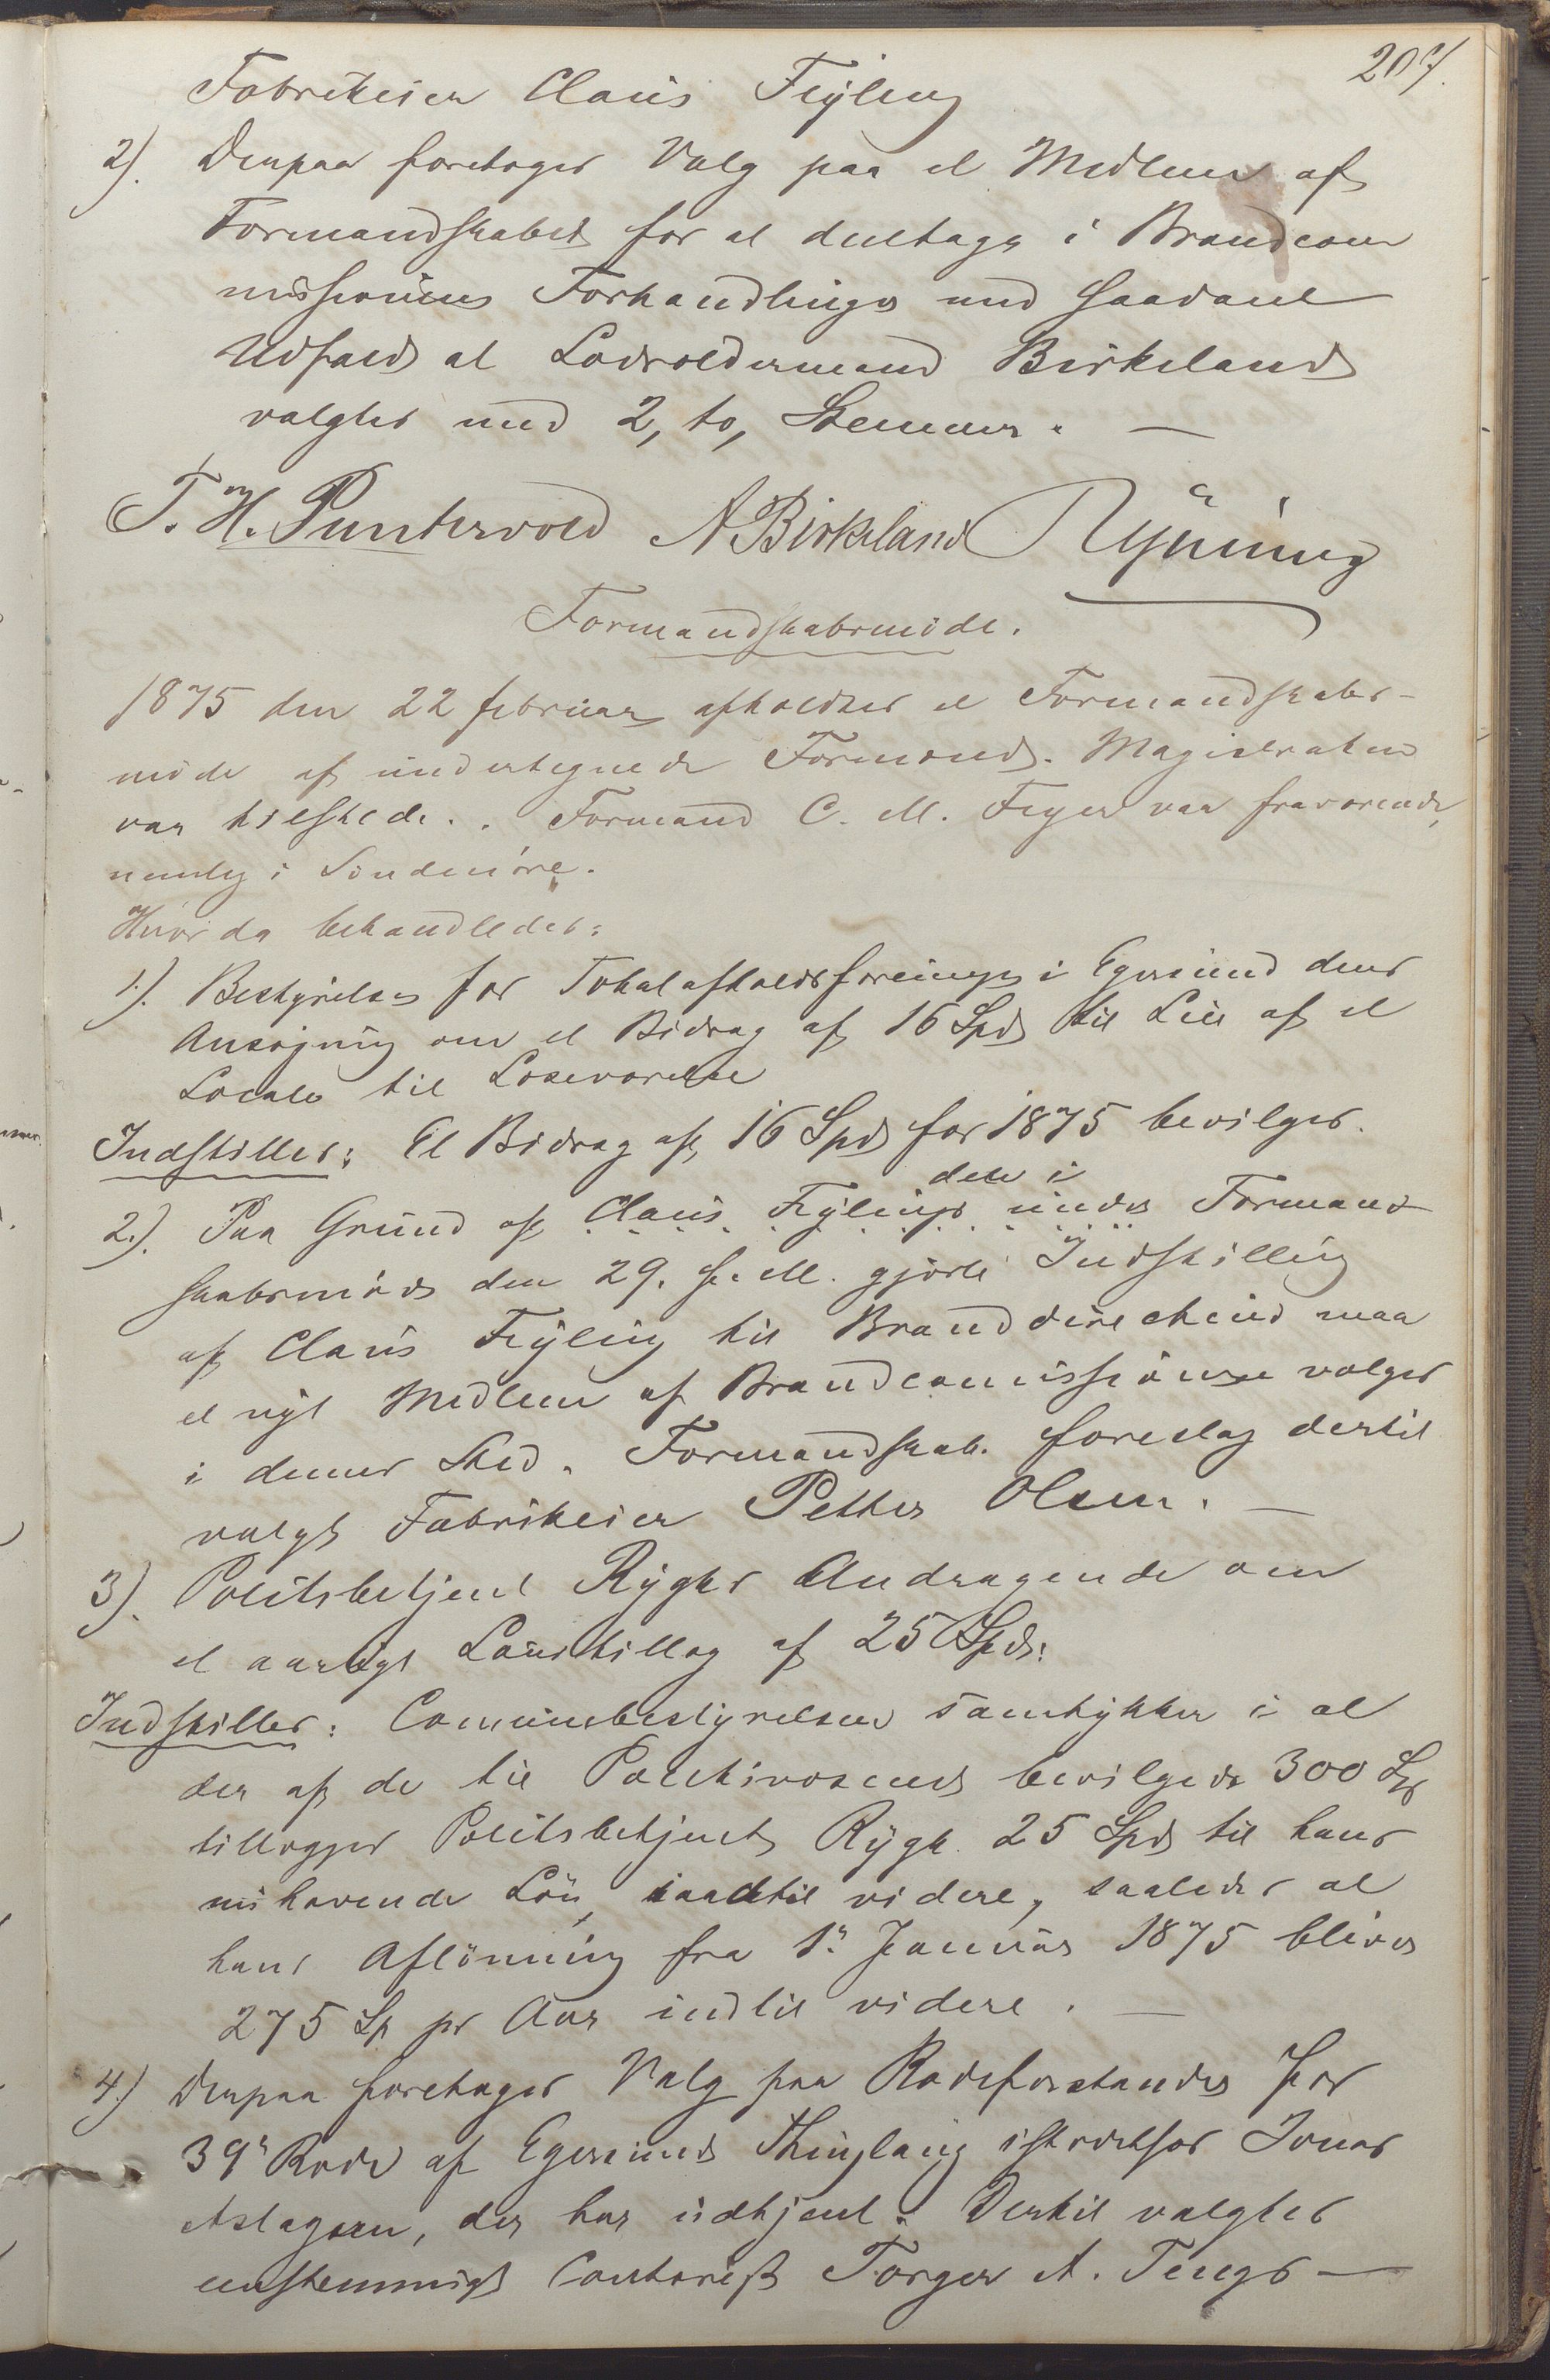 207.
Fabrikeier Claus Feyling
2). Derpaa foretoges Valg paa et Medlem af
Formandskabet for at deeltage i Brandcom
missionens Forhandlinger med saadant
Udfald at Lodsoldermand Birkeland
valgtes med 2, to, Stemmer. —
T. H. Puntervold A Birkeland Rynning
Formandskabsmøde.
1875 den 22 februar afholdtes et Formandskabs-
møde af undertegnede Formænd. Magistraten
var tilstede. . Formand C. M. Feyer var fraværende,
nemlig i Søndmøre.
Hvor da behandledes:
1.). Bestyrelsen for Totalafholdsforeningen i Egersund dens
Ansøgning om et Bidrag af 16 Spd til Leie af et
Locale til Læseværelse
Indstilles: Et Bidrag af 16 Spd for 1875 bevilges.
den i
2.). Paa Grund af Claus Feylings under Formand
skabsmøde den 29. f. M. gjorte Indstilling
af Claus Feyling til Branddirecteur maa
et nyt Medlem af Brandcommissionen vælges
i dennes Sted. Formandskab. foreslog dertil
valgt Fabrikeier Petter Olsen. —
3). Politibetjent Ryghs Andragende om
et aarligt Lønstillæg af 25 Spd:
Indstilles: Communebestyrelsen samtykker i at
der af de til Politivæsenet bevilgede 300 Sp
tillægges Politibetjent Rygh 25 Spd til hans
nuhavende Løn, indtil videre, saaledes at
hans Aflønning fra 1ste Januar 1875 bliver
275 Sp pr Aar indtil videre. —
4.) Derpaa foretoges Valg paa Rodeforstander for
39te Rode af Egersunds Thinglaug istedetfor Jonas
Aslagsen, der har udtjent. Dertil valgtes
eenstemmigt Contorist Torger A. Tengs —